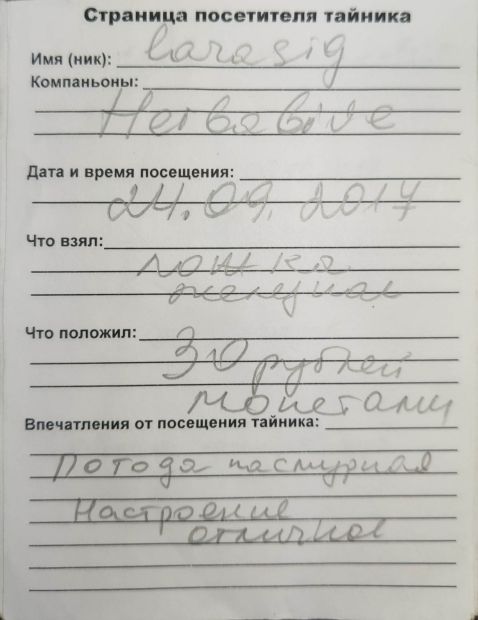 Страница посетителя тайника
Имя (ник): larasig
Компаньоны:
Дата и время посещения:
24.09.2017
Что взял:
ложка
Что положил:
30 рублей
монетами
Впечатления от посещения тайника:
Погода пасмурная
Настроение
отличное